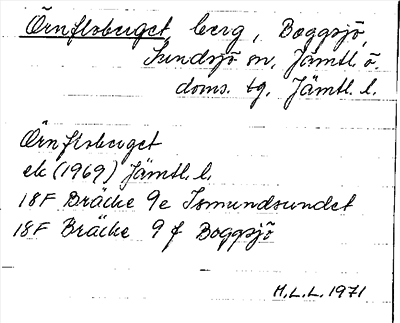 Örnfloberget, berg, Boggsjö,
Sundsjö sn, Jämtl. ö.
doms. tg, Jämtl. l.
Örnfloberget
ek (1969) Jämtl. l.
18F Bräcke 9e Ismundsundet
18F Bräcke 9f Boggsjö
H.L.L. 1971